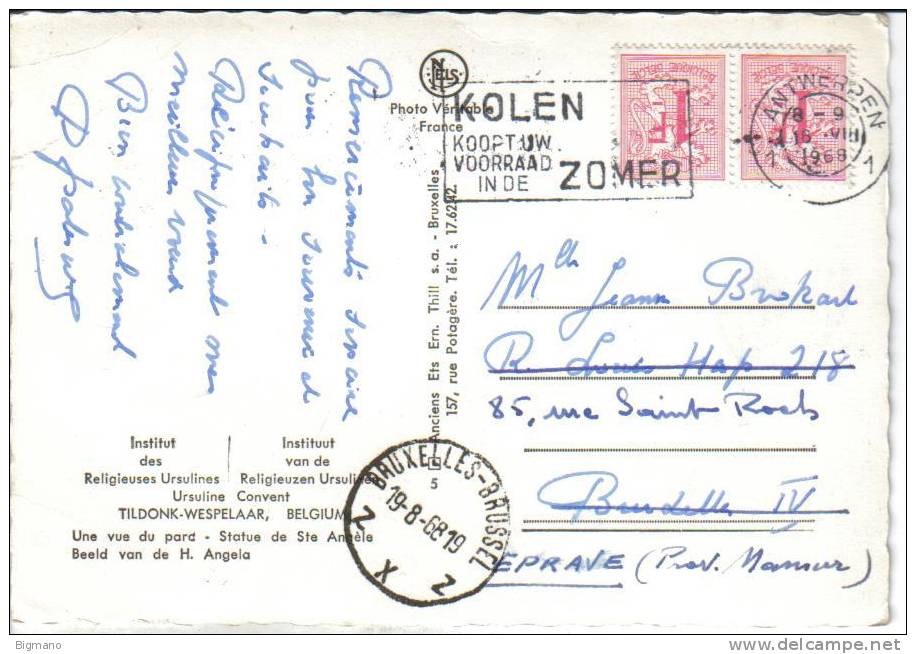 Remerciements sincère
pour bon souvenir et
souhaits -
Réciproquement mes
meilleurs vœux
Bien cordialement
NELS
Photo Véritable
France
KOLEN
KOOPT UW
VOORRAAD
IN DE ZOMER
ANTWERPEN
1 1
18 - 9
16 VIII
1968
Anciens Ets Ern. Thill s.a. - Bruxelles
157, rue Potagère. Tél. : 17.62.42.
Mlle Jeanne Brokart
R. Louis Hap 218
85, rue Saint Roch
Bruxelles IV
EPRAVE (Prov. Namur)
BRUXELLES-BRUSSEL
5
19-8-68 19
Z X Z
Institut
des
Religieuses Ursulines
Instituut
van de
Religieuzen Ursulinen
Ursuline Convent
TILDONK-WESPELAAR, BELGIUM
Une vue du pard - Statue de Ste Angèle
Beeld van de H. Angela
Bigmano
www.delcampe.net